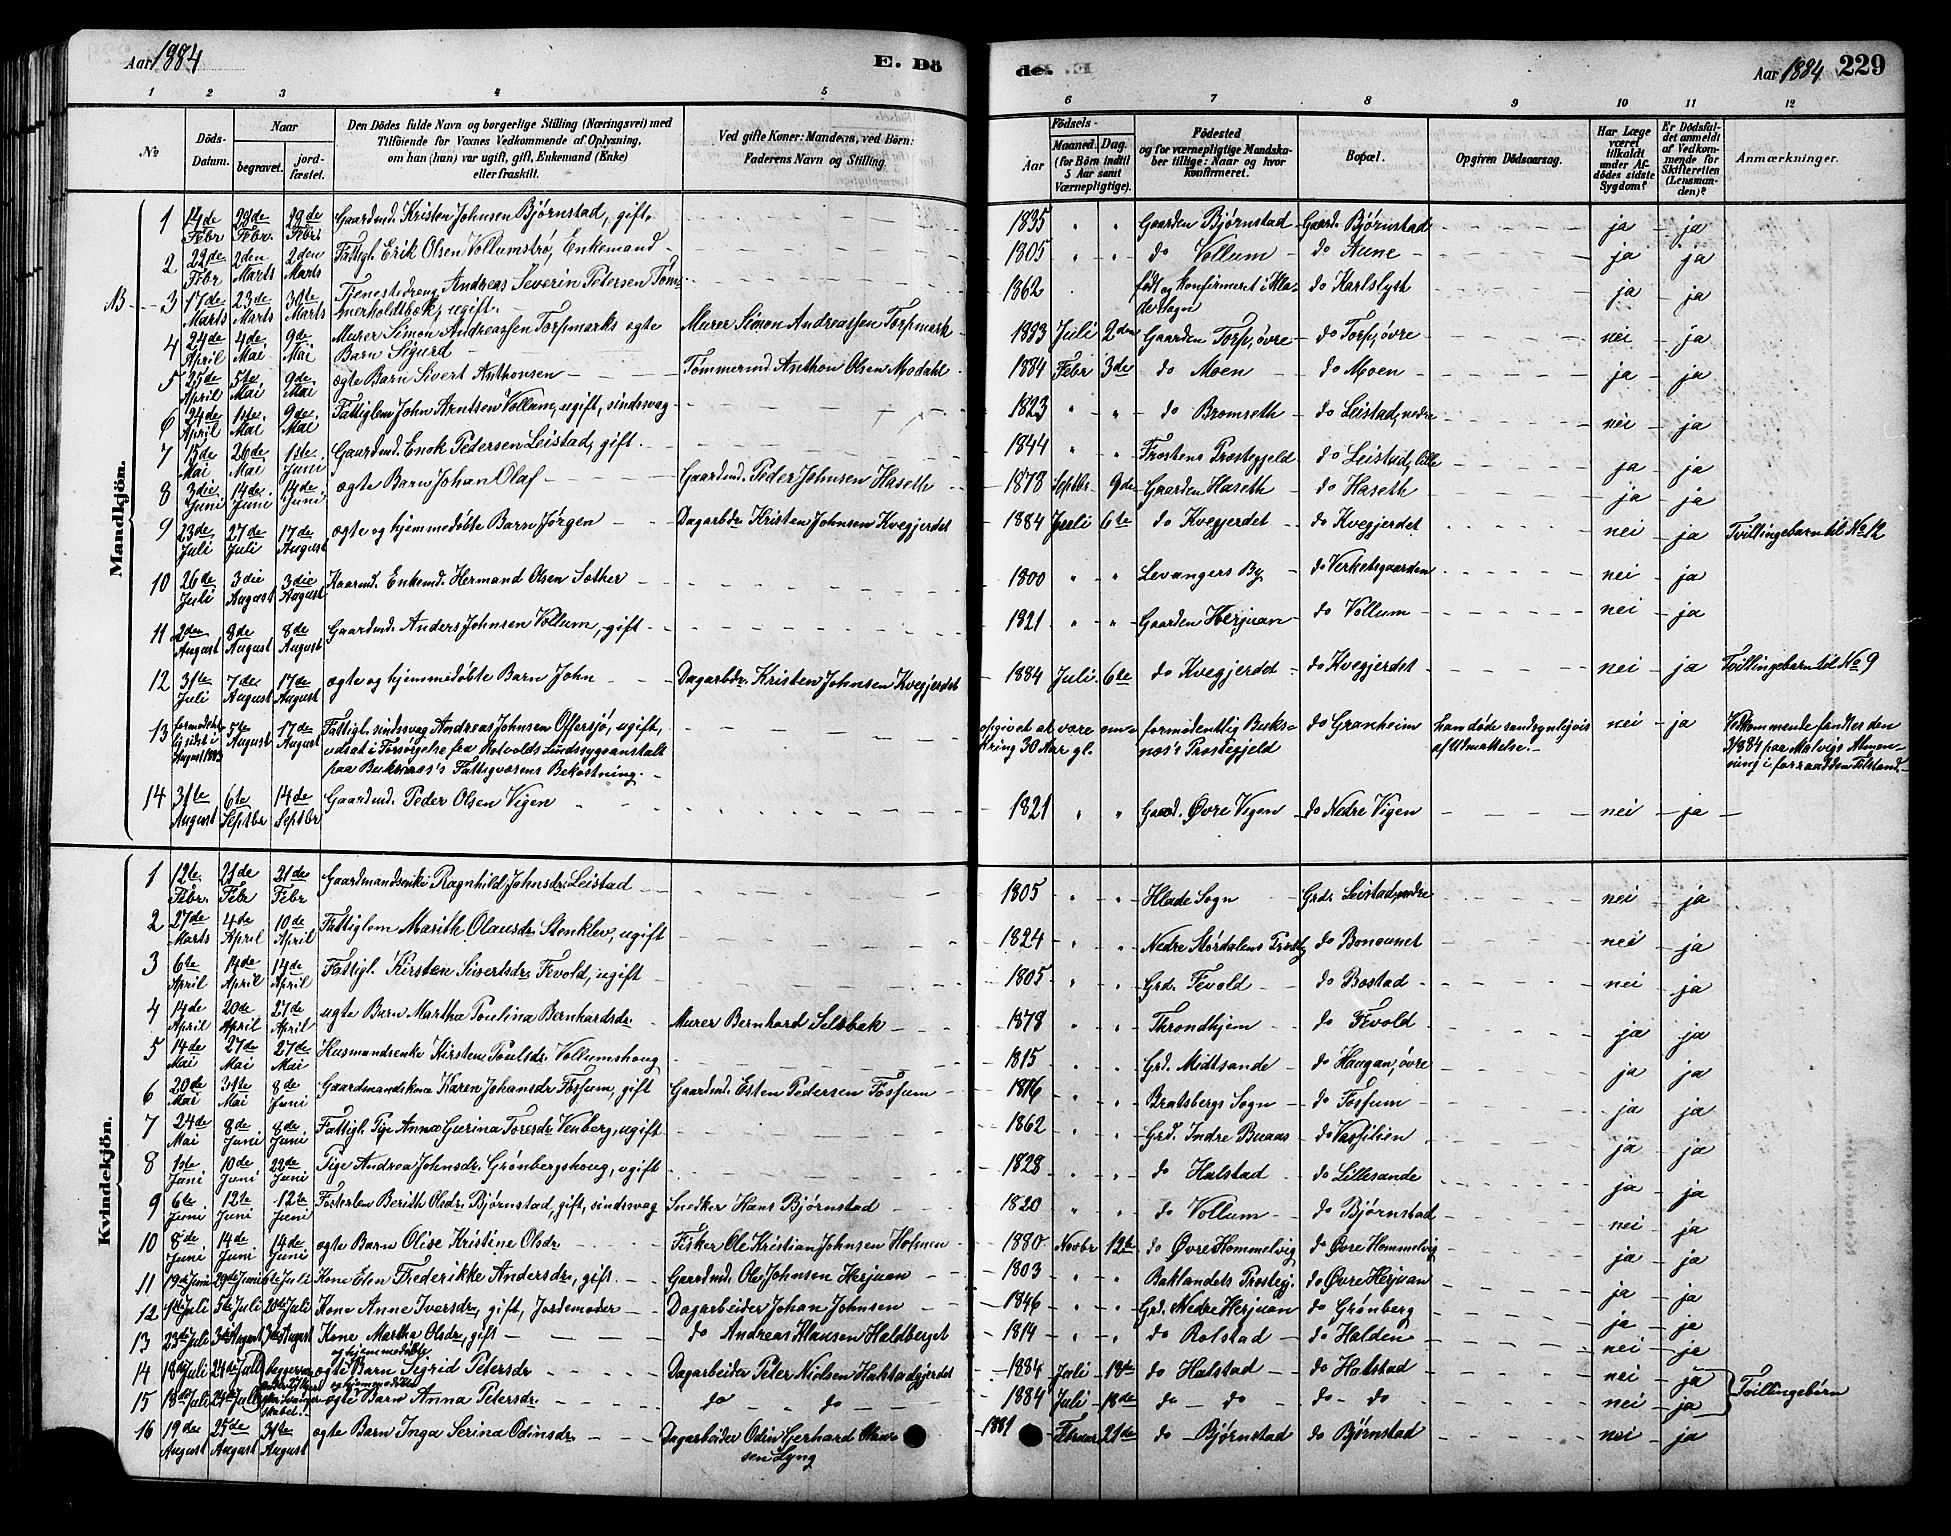 Aar 1884 E. Dö
de. Aar 1884 229
1 2 3 4 5
6 7 8 9 10 11 12
№ Döds-Datum. Naar begravet. jordfæstet. Den Dödes fulde Navn og borgerlige Stilling (Næringsvei) med Tilföiende for Voxnes Vedkommende af Oplysning, om han (hun) var ugift, gift, Enkemand (Enke) eller fraskilt. Ved gifte Koner: Mandens, ved Börn: Faderens Navn og Stilling.
Aar Födsels- Maaned. Dag. (for Börn indtil 5 Aar samt Værnepligtige). Födested og for værnepligtige Mandskaber tillige: Naar og hvor konfirmeret. Bopæl. Opgiven Dödsaarsag. Har Læge været tilkaldt under Afdödes sidste Sygdom? Er Dödsfaldet anmeldt af Vedkommende for Skifteretten (Lensmanden)? Anmærkninger.
Mandkjön.
1 14de Febr 29de Febr. 29de Febr. Gaardmd. Kristen Johnsen Bjørnstad, gift. 1835 " " Gaarden Bjørnstad Gaard. Bjørnstad ja ja
2 22de Febr 2den Marts 2den Marts Fattigl. Erik Olsen Vollumstrø, Enkemand 1805 " " do Vollum do Aune ja ja
3 17de Marts 23de Marts 30te Marts Tjenestedreng Andreas Severin Petersen Tømmerholdtbæk, ugift. 1862 født og konfirmeret i Hlade Sogn do Karlslyst ja ja
4 24de April 4de Mai 9de Mai Murer Simon Andreassen Torpmarks ægte Barn Sigurd Murer Simon Andreassen Torpmark 1883 Juli 2den Gaarden Torp, øvre do Torp, øvre nei ja
5 25de April 5te Mai 9de Mai ægte Barn Sivert Anthonsen Tømmermd Anthon Olsen Modahl 1884 Febr 3de do Moen do Moen ja ja
6 24de April 1ste Mai 9de Mai Fattiglem John Arntsen Vollum, ugift, sindssvag 1823 " " do Bromseth do Leistad, nedre nei ja
7 15de Mai 26de Mai 1ste Juni Gaardmd. Enok Pedersen Leistad, gift. 1844 " " Frostens Præstegjeld do Leistad, lille ja ja
8 3die Juni 14de Juni 14de Juni ægte Barn Johan Olaf Gaardmd. Peder Johnsen Haseth 1878 Septbr 9de Gaarden Haseth do Haseth ja ja
9 23de Juli 27de Juli 17de August ægte og hjemmedøbte Barn Jørgen Dagarbdr. Kristen Johnsen Kvegjerdet 1884 Juli 6te do Kvegjerdet do Kvegjerdet nei ja Tvillingebarn til No 12
10 26de Juli 3die August 3die August Kaarmd. Enkemd. Hermand Olsen Sother 1800 " " Levangers By do Verketsgaarden nei ja
11 2den August 8de August 8de August Gaardmd. Anders Johnsen Vollum, gift 1821 " " Gaarden Herjuan do Vollum nei ja
12 31te Juli 7de August 17de August ægte og hjemmedøbte Barn John Dagarbdr. Kristen Johnsen Kvegjerdet 1884 Juli 6te do Kvegjerdet do Kvegjerdet nei ja Tvillingebarn til No 9
13 formodentlig sidst i August 1883 5te August 17de August Fattigl. sindssvag Andreas Johnsen Offersjö, ugift, udsat i Forsørgelse fra Rotvolds Sindssygeanstalt paa Buksnæs's Fattigvæsens Bekostning. opgivet at være omkring 30 Aar gl. formodentlig Buksnæs's Præstegjeld do Granheim han døde sandsynligvis af Udmattelse. nei ja Vedkommende fandtes den 3/884 paa Malvigs Almenning i forraadnet Tilstand.
14 31te August 6te Septbr 14de Septbr Gaardmd. Peder Olsen Vigen 1821 " " Gaard. Øvre Vigen do Nedre Vigen nei ja
Kvindekjön.
1 12te Febr. 21de Febr 21de Febr Gaardmandsenke Ragnhild Johnsdr. Leistad 1805 " " Hlade Sogn Grd. Leistad, nedre nei ja
2 27de Marts 4de April 10de April Fattiglem Marith Olausdr. Stenklev, ugift 1824 " " Nedre Størdalens Præstg do Bonaunet nei ja
3 6te April 14de April 14de April Fattigl. Kirsten Sivertsdr. Fevold, ugift 1805 " " Grd. Fevold do Bostad nei ja
4 14de April 20de April 27de April ægte Barn Martha Poulina Bernhardsdr. Murer Bernhard Selsbak 1878 " " Throndhjem do Fevold ja ja
5 14de Mai 27de Mai 27de Mai Husmandsenke Kirsten Poulsdr. Vollumshoug 1815 " " Grd. Midtsande do Haugan, øvre ja ja
6 20de Mai 31te Mai 8de Juni Gaardmandskone Karen Johansdr. Fosfum, gift Gaardmd. Esten Pedersen Fosfum 1816 " " Bratsbergs Sogn do Fosfum ja ja
7 24de Mai 8de Juni 8de Juni Fattigl. Pige Anna Gurina Toresdr. Venberg, ugift 1862 " " Grd. Indre Buaas do Vasfilien ja ja
8 1ste Juni 10de Juni 22de Juni Pige Andrea Johnsdr. Grønbergshoug, ugift 1828 " " do Halstad do Lillesande ja ja
9 6te Juni 12te Juni 12te Juni Berith Olsdr. Bjørnstad, gift, sindssvag Snedker Hans Bjørnstad 1820 do Vollum do Bjørnstad nei ja
10 8de Juni 14de Juni 14de Juni ægte Barn Olise Kristine Olsdr. Fisker Ole Kristian Johnsen Holmen 1880 Novbr 12te do Øvre Hommelvig do Øvre Hommelvig ja ja
11 19de Juni 29de Juni 6te Juli Kone Elen Frederikke Andersdr., gift. Gaardmd. Ole Johnsen Herjuan 1803 " " Baklandets Præstegj. do Øvre Herjuan ja ja
12 1ste Juli 5te Juli 20de Juli Kone Anne Iversdr., gift, Jordemoder Dagarbeider Johan Johnsen 1846 " " Grd. Nedre Herjuan do Grønberg ja ja
13 23de Juli 3die August 3die August Kone Martha Olsdr., gift do Andreas Klausen Haldberget 1814 " " do Rolstad do Halden nei ja
14 18de Juli 24de Juli ægte og hjemmedøbte Barn Sigrid Petersdr Dagarbeider Peter Nielsen Halstadgjerdet 1884 Juli 18de do Halstad do Halstad nei ja
15 18de Juli 24de Juli ægte og hjemmedøbte Barn Anna Petersdr. do do 1884 Juli 18de do do do do nei ja Tvillingebørn
16 19de August 25de August 31te August ægte Barn Inga Serina Odinsdr. Dagarbeider Odin Gerhard Olausen Lyng 1881 Februar 21de do Bjørnstad do Bjørnstad nei ja